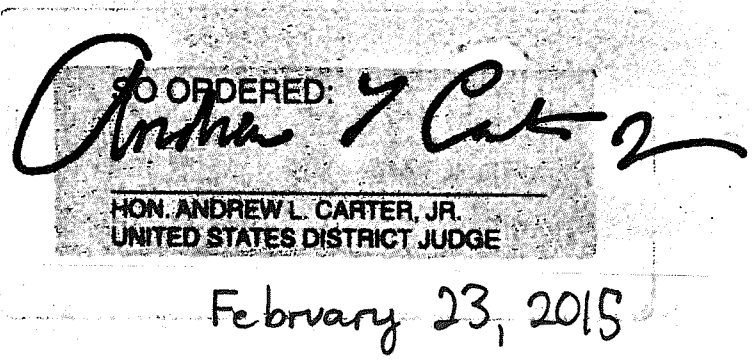 SO ORDERED:
Andrew L Carter
HON. ANDREW L. CARTER, JR.
UNITED STATES DISTRICT JUDGE
February 23, 2015